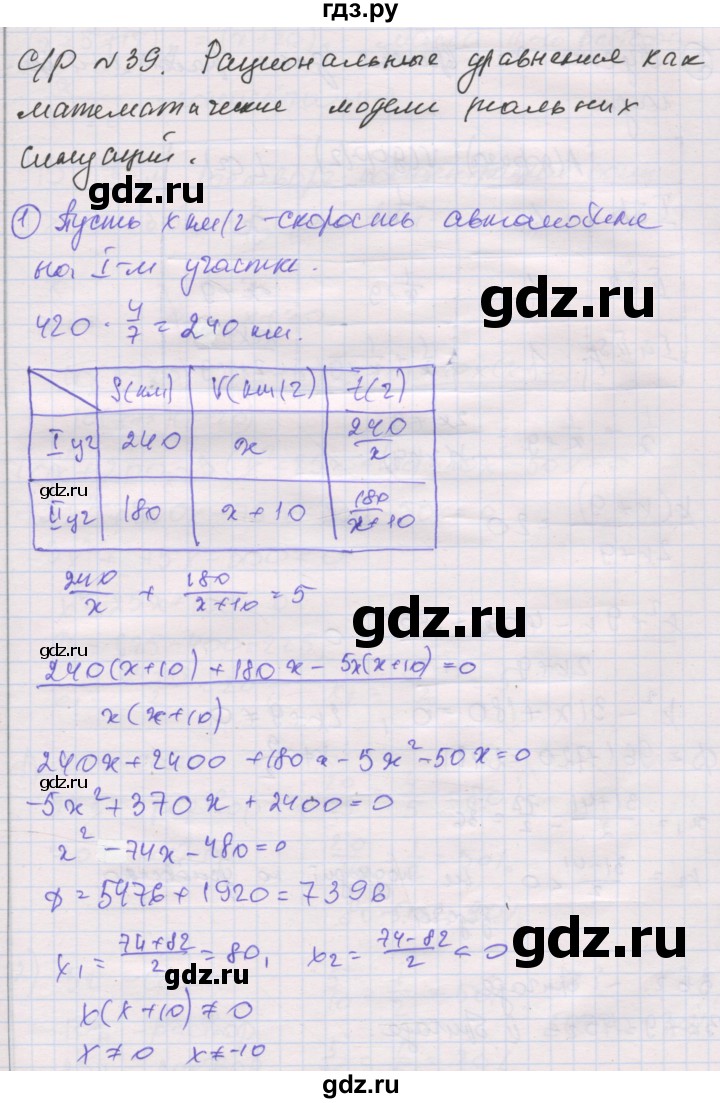 гдз.ру
С/Р №39. Рациональные уравнения как
математические модели реальных
ситуаций.
gdz.ru
① Пусть x км/г - скорость автомобиля
на I-м участке.
gdz.ru
420 · 4/7 = 240 км.
S(км) V(км/г) t(г)
I уч 240 x 240/x
gdz.ru
II уч 180 x+10 180/x+10
240/x + 180/x+10 = 5
gdz.ru
gdz.ru
240(x+10) + 180x - 5x(x+10) = 0
x(x+10)
240x + 2400 + 180x - 5x² - 50x = 0
gdz.ru
-5x² + 370x + 2400 = 0
x² - 74x - 480 = 0
D = 5476 + 1920 = 7396
gdz.ru
x₁ = 74+82/2 = 80, x₂ = 74-82/2 < 0
gdz.ru
x(x+10) ≠ 0
x ≠ 0 x ≠ -10
gdz.ru